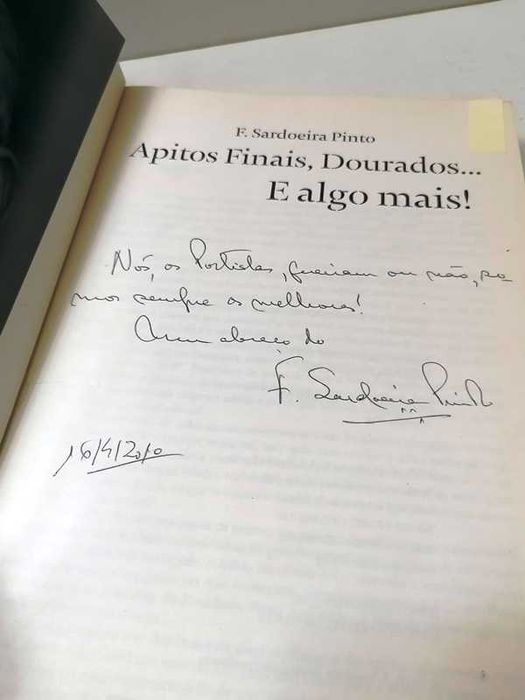 F. Sardoeira Pinto
Apitos Finais, Dourados...
E algo mais!
Nós, os Portistas, queiram ou não, so
mos sempre os melhores!
Com abraço do
F. Sardoeira Pinto
16/4/2010